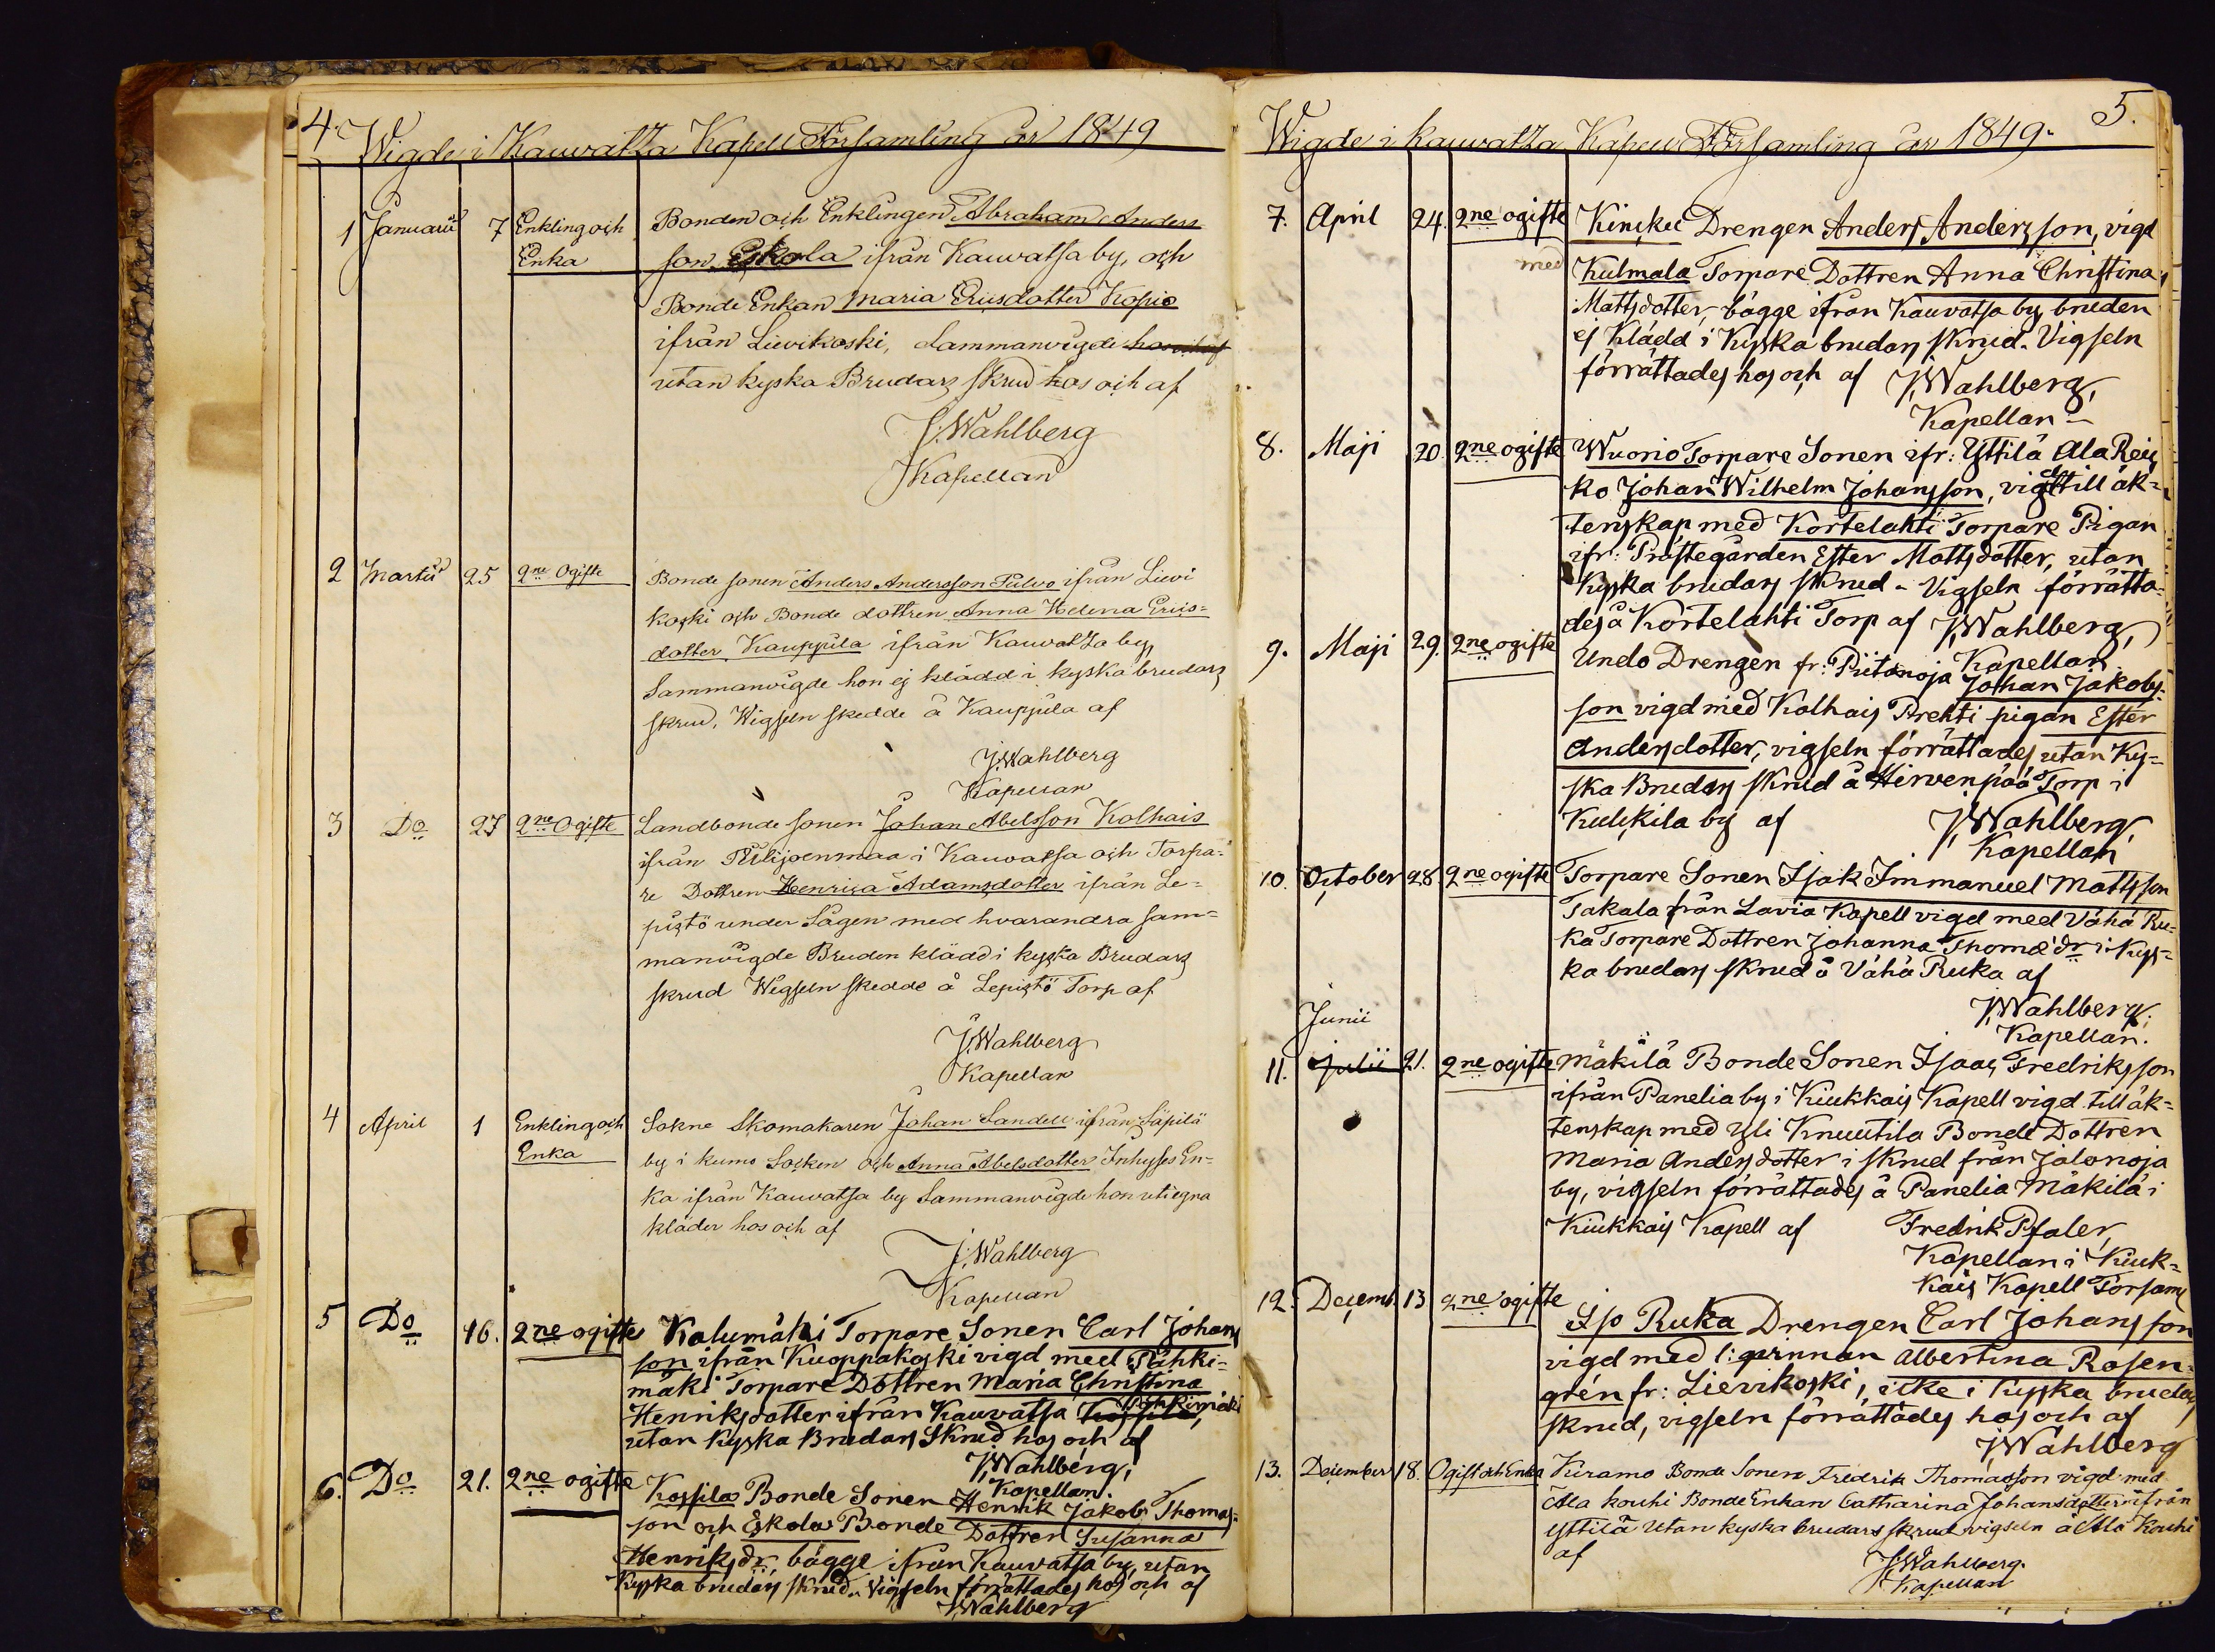 4. Wigde i Kauvatza Kapell Församling år 1849
1 Januarii 7 Enkling och Enka
Bonden och Enklingen Abraham Anders
son Eskola ifrån Kauvatsa by, och
Bonde Enkan Maria Ericsdotter Kopio
ifrån Lievikoski, Sammanvigde hos och af
utan kyska Brudars skrud hos och af
J. Wahlberg
Kapellan
2 Martii 25 2ne Ogifte
Bonde sonen Anders Andersson Tulvo ifrån Lievi
koski och Bonde dottren Anna Helena Erics=
dotter Kauppila ifrån Kauvatza by,
Sammanvigde hon ej klädd i kyska brudars
skrud, Wigseln skedde å Kauppila af
J. Wahlberg
Kapellan
3 Do 27 2ne Ogifte
Landbonde sonen Johan Abelsson Kolhais
ifrån Yliljoenmaa i Kauvatsa och Torpa=
re Dottren Henrica Adamsdotter ifrån Le=
pistö under Sågen med hvarandra sam=
manvigde Bruden klädd i kyska Brudars
skrud Wigseln skedde å Lepistö Torp af
J. Wahlberg
Kapellan
4 April 1 Enkling och Enka
Sokne Skomakaren Johan Sandell ifrån Säpilä
by i Kumo Socken och Anna Abelsdotter Inhyses En=
ka ifrån Kauvatsa by Sammanvigde hon uti egna
kläder hos och af
J. Wahlberg
Kapellan
5 Do 16. 2ne ogifte
Kalumäki Torpare Sonen Carl Johans
son ifrån Kuoppakoski vigd med Pähki=
mäki Torpare Dottren Maria Christina
Henriksdotter ifrån Kauvatsa Kossila, Pähkimäki
utan kyska Brudars Skrud hos och af
J. Wahlberg,
Kapellan.
6. Do 21. 2ne ogifte
Kossila Bonde Sonen Henrik Jakob Thomas=
son och Eskola Bonde Dottren Susanna
Henriksdr bägge ifrån Kauvatsa by, utan
Kyska brudars skrud. Vigseln förrättades hos och af
J. Wahlberg
Wigde i Kauvatza Kapell Församling år 1849. 5.
7. April 24. 2ne ogifte
Kincku Drengen Anders Andersson, vigd
med Kulmala Torpare Dottren Anna Christina
Mattsdotter, bägge ifrån Kauvatsa by, bruden
ej Klädd i Kyska brudars skrud. Vigseln
förrättades hos och af J. Wahlberg,
Kapellan
8. Maji 20. 2ne ogifte
Wuorio Torpare Sonen ifr: Yttilä Ala Reic
ko Johan Wilhelm Johansson, vigd till äk=
tenskap med Kortelahti Torpare Pigan
ifr: Prästegården Ester Mattsdotter, utan
Kyska brudars skrud - Vigseln förrätta=
des å Kortelahti Torp af J. Wahlberg,
Kapellan
9. Maji 29. 2ne ogifte
Undo Drengen fr: Piitanoja Johan Jakobs=
son vigd med Kolhais Prehti pigan Ester
Andersdotter, vigseln förrättades utan Ky=
ska Brudars skrud å Hirvenpää Torp i
Kulckila by af J. Wahlberg,
Kapellan
10. October 28 2ne ogifte
Torpare Sonen Isak Immanuel Mattsson
Takala från Lavia Kapell vigd med Vähä Ru=
ka Torpare Dottren Johanna Thomædr i kys=
ka brudars skrud å Vähä Ruka af
J. Wahlberg,
Kapellan.
Junii
11. Julii 21. 2ne ogifte
Mäkilä Bonde Sonen Isaac Fredriksson
ifrån Panelia by i Kiukkais Kapell vigd till äk=
tenskap med Yli Knuutila Bonde Dottren
Maria Andersdotter i skrud från Jalonoja
by, vigseln förrättades å Panelia Mäkilä i
Kiukkais Kapell af Fredrik Pfaler,
Kapellan i Kiuk=
kais Kapell Församl
12. Decemb. 13 2ne ogifte
Iso Ruka Drengen Carl Johansson
vigd med Albertina Rosen=
grén fr: Lievikoski, icke i Kyska brudars
skrud, vigseln förrättades hos och af
J. Wahlberg
13. December 18. Ogift och Enka
Kiramo Bonde Sonen Fredrik Thomasson vigd med
Ala kouhi Bonde Enkan Catharina Johansdotter ifrån
Yttilä utan kyska brudars skrud vigseln å Ala Kouhi
af
J. Wahlberg.
Kapellan